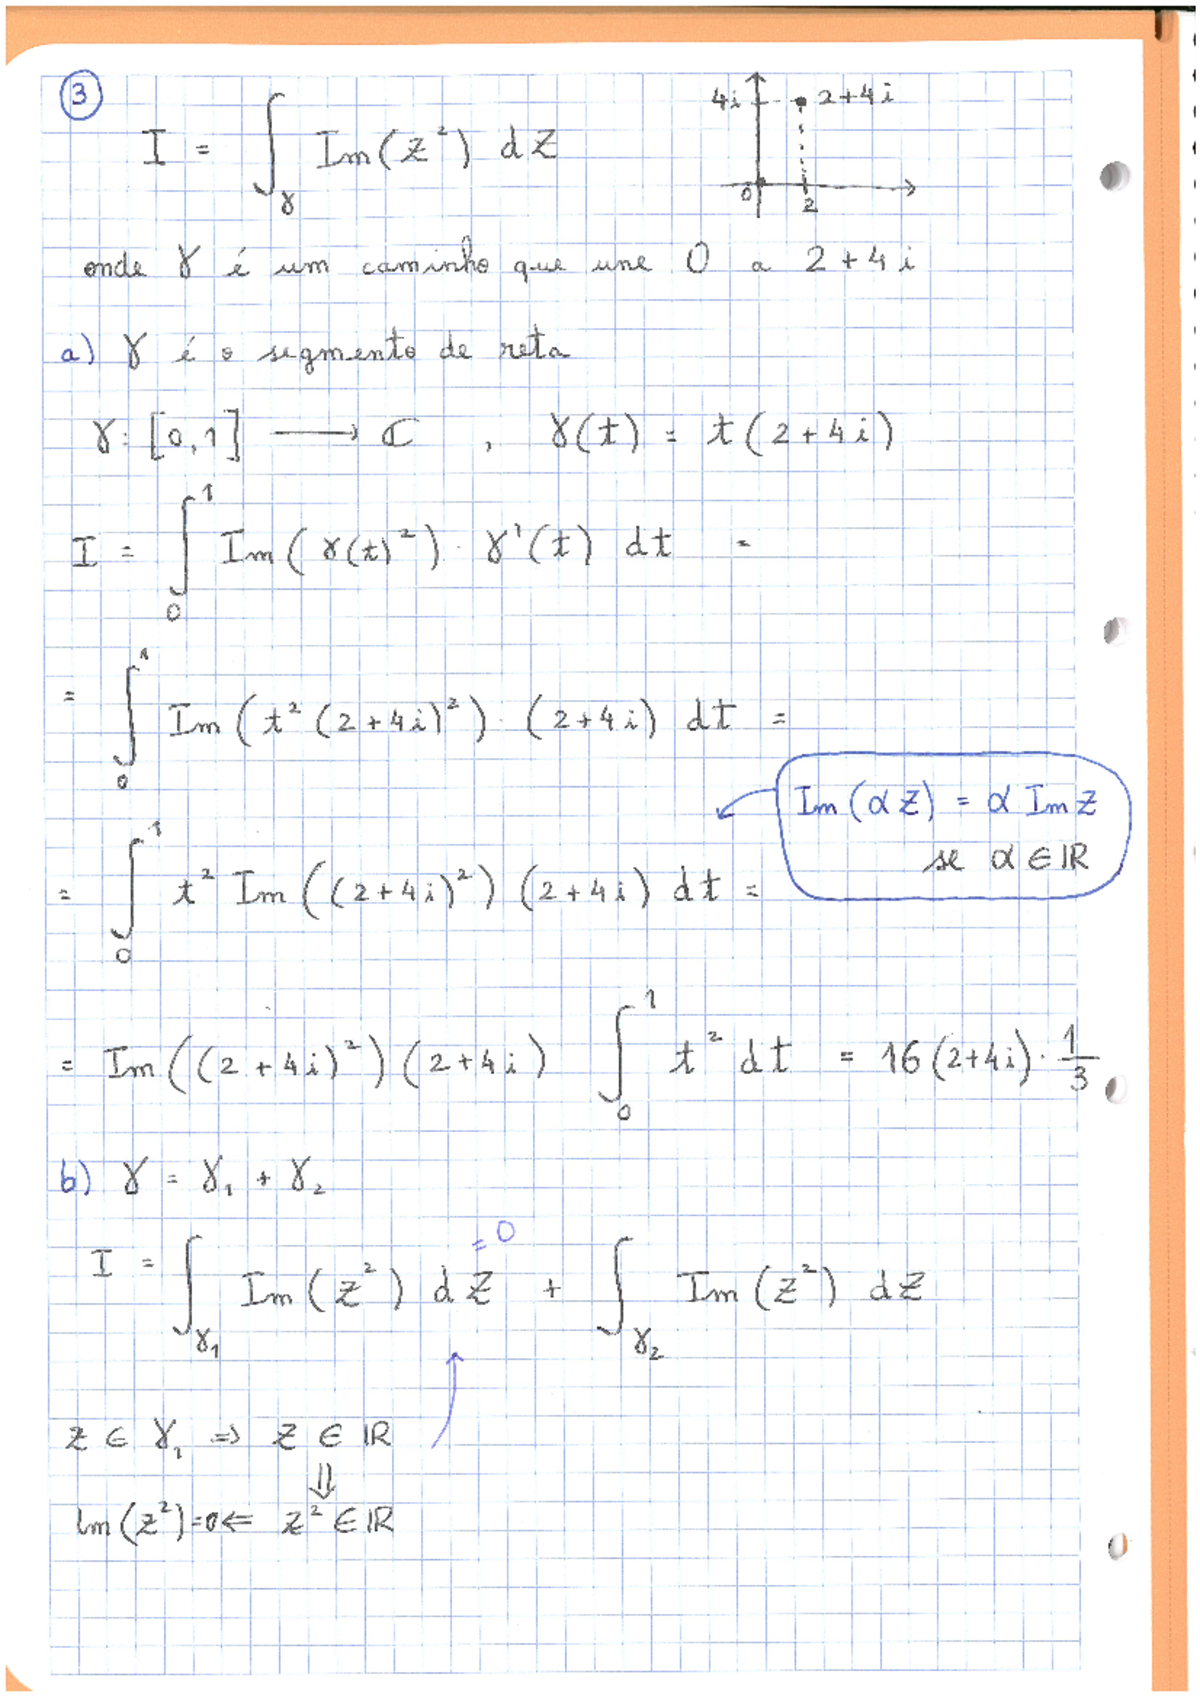 3
I = ∫_γ Im(z²) dz
4i 2+4i
0 2
onde γ é um caminho que une 0 a 2+4i
a) γ é o segmento de reta
γ: [0,1] ⟶ ℂ , γ(t) = t(2+4i)
I = ∫₀¹ Im(γ(t)²) · γ'(t) dt =
= ∫₀¹ Im(t²(2+4i)²) · (2+4i) dt =
Im(αz) = α Im z
se α ∈ ℝ
= ∫₀¹ t² Im((2+4i)²) (2+4i) dt =
= Im((2+4i)²)(2+4i) ∫₀¹ t² dt = 16(2+4i) · 1/3
b) γ = γ₁ + γ₂
= 0
I = ∫_γ₁ Im(z²) dz + ∫_γ₂ Im(z²) dz
z ∈ γ₁ ⇒ z ∈ ℝ
⇓
Im(z²)=0 ⇐ z² ∈ ℝ